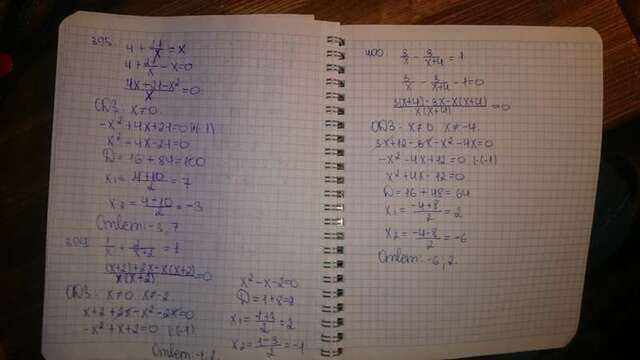 395. 4 + 21/x = x
4 + 21/x - x = 0
4x + 21 - x² / x = 0
ОДЗ: x ≠ 0
-x² + 4x + 21 = 0 |·(-1)
x² - 4x - 21 = 0
D = 16 + 84 = 100
x₁ = 4+10 / 2 = 7
x₂ = 4-10 / 2 = -3
Ответ: -3, 7
1/x + 2/x+2 = 1
(x+2) + 2x - x(x+2) / x(x+2) = 0
ОДЗ: x ≠ 0 x ≠ -2
x + 2 + 2x - x² - 2x = 0
-x² + x + 2 = 0 |·(-1)
x² - x - 2 = 0
D = 1 + 8 = 9
x₁ = 1+3 / 2 = 2
x₂ = 1-3 / 2 = -1
Ответ: -1, 2
400. 3/x - 3/x+4 = 1
3/x - 3/x+4 - 1 = 0
3(x+4) - 3x - x(x+4) / x(x+4) = 0
ОДЗ: x ≠ 0 x ≠ -4
3x + 12 - 3x - x² - 4x = 0
-x² - 4x + 12 = 0 |·(-1)
x² + 4x - 12 = 0
D = 16 + 48 = 64
x₁ = -4+8 / 2 = 2
x₂ = -4-8 / 2 = -6
Ответ: -6, 2